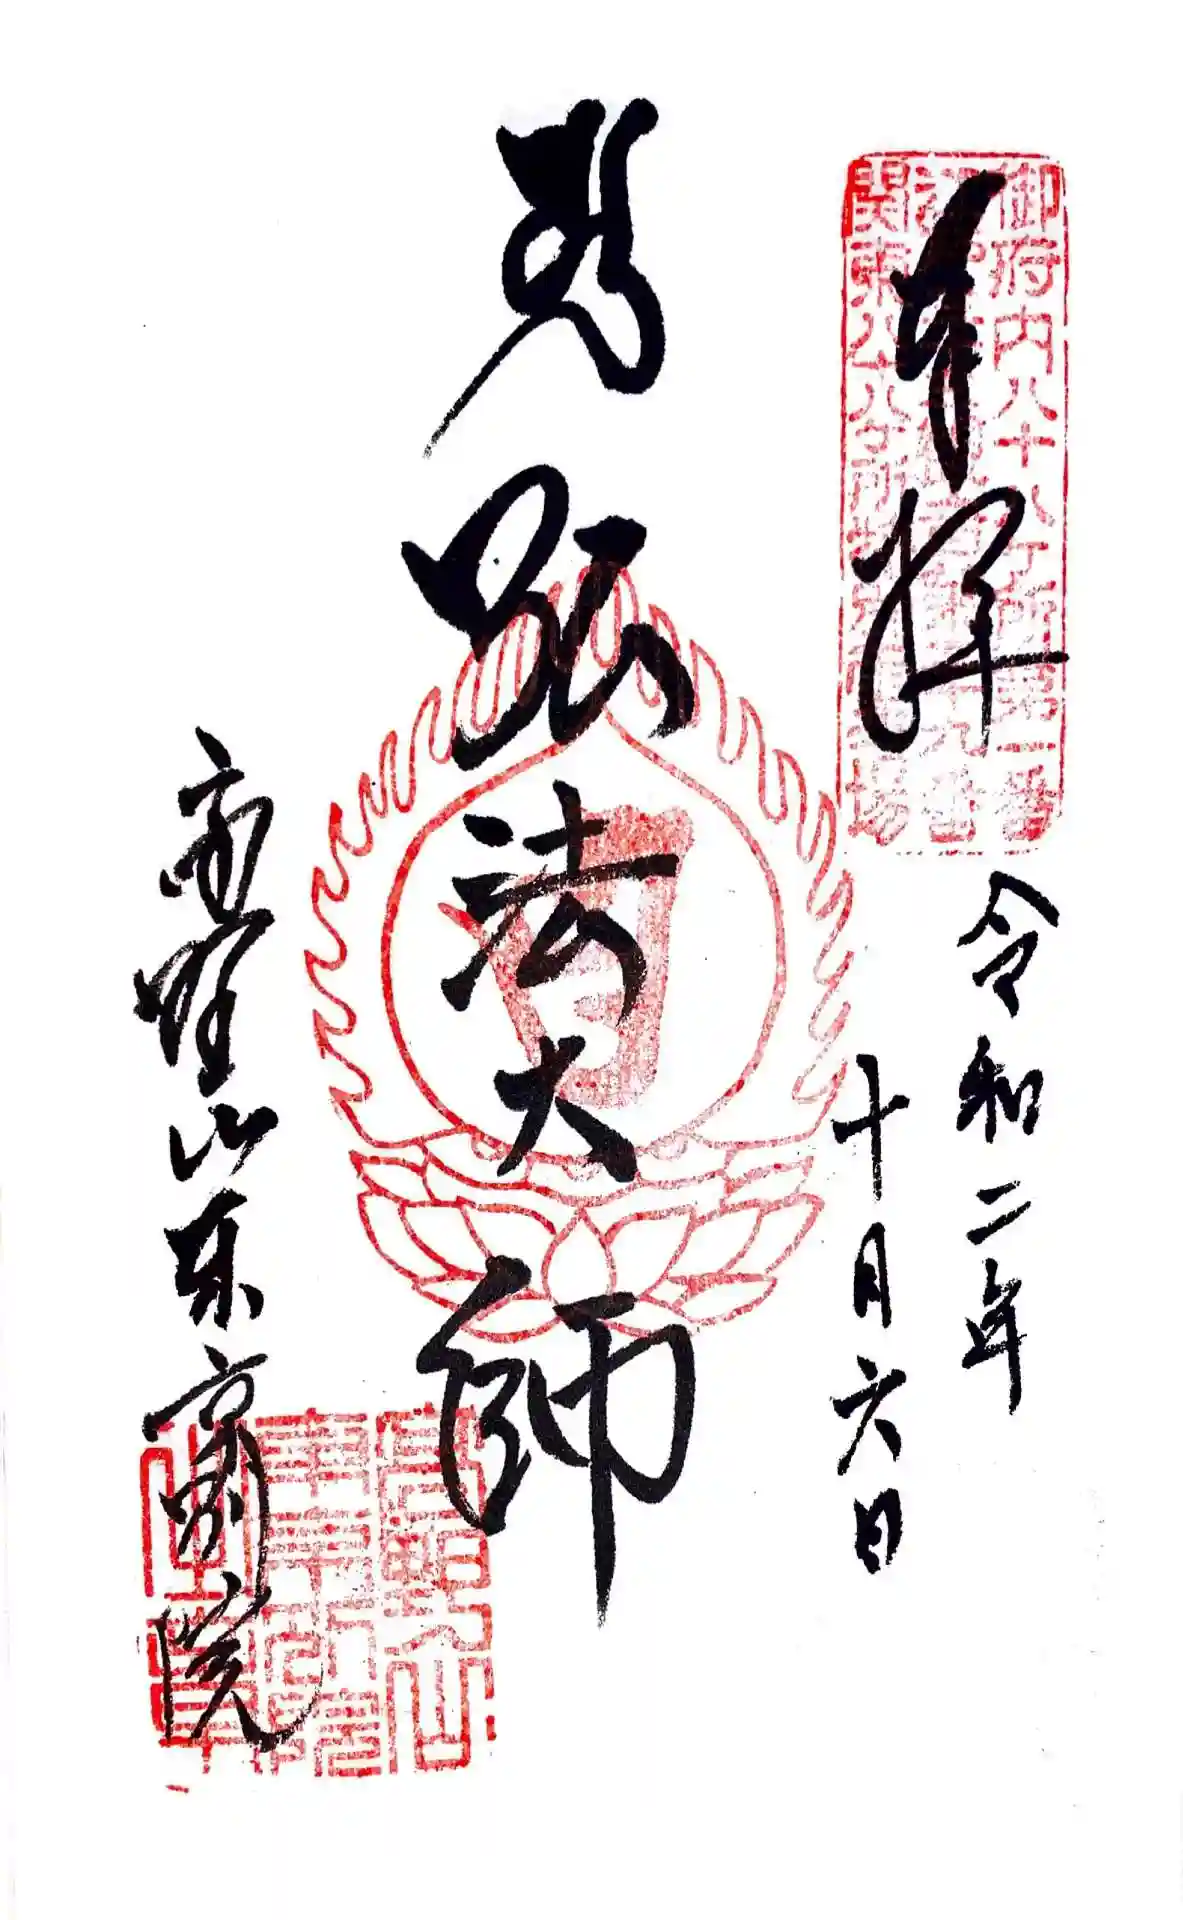 御府内八十八ヶ所第一番
関東八十八ヶ所特別霊場
奉拝
令和二年
十月六日
弘法大師
高野山東京別院